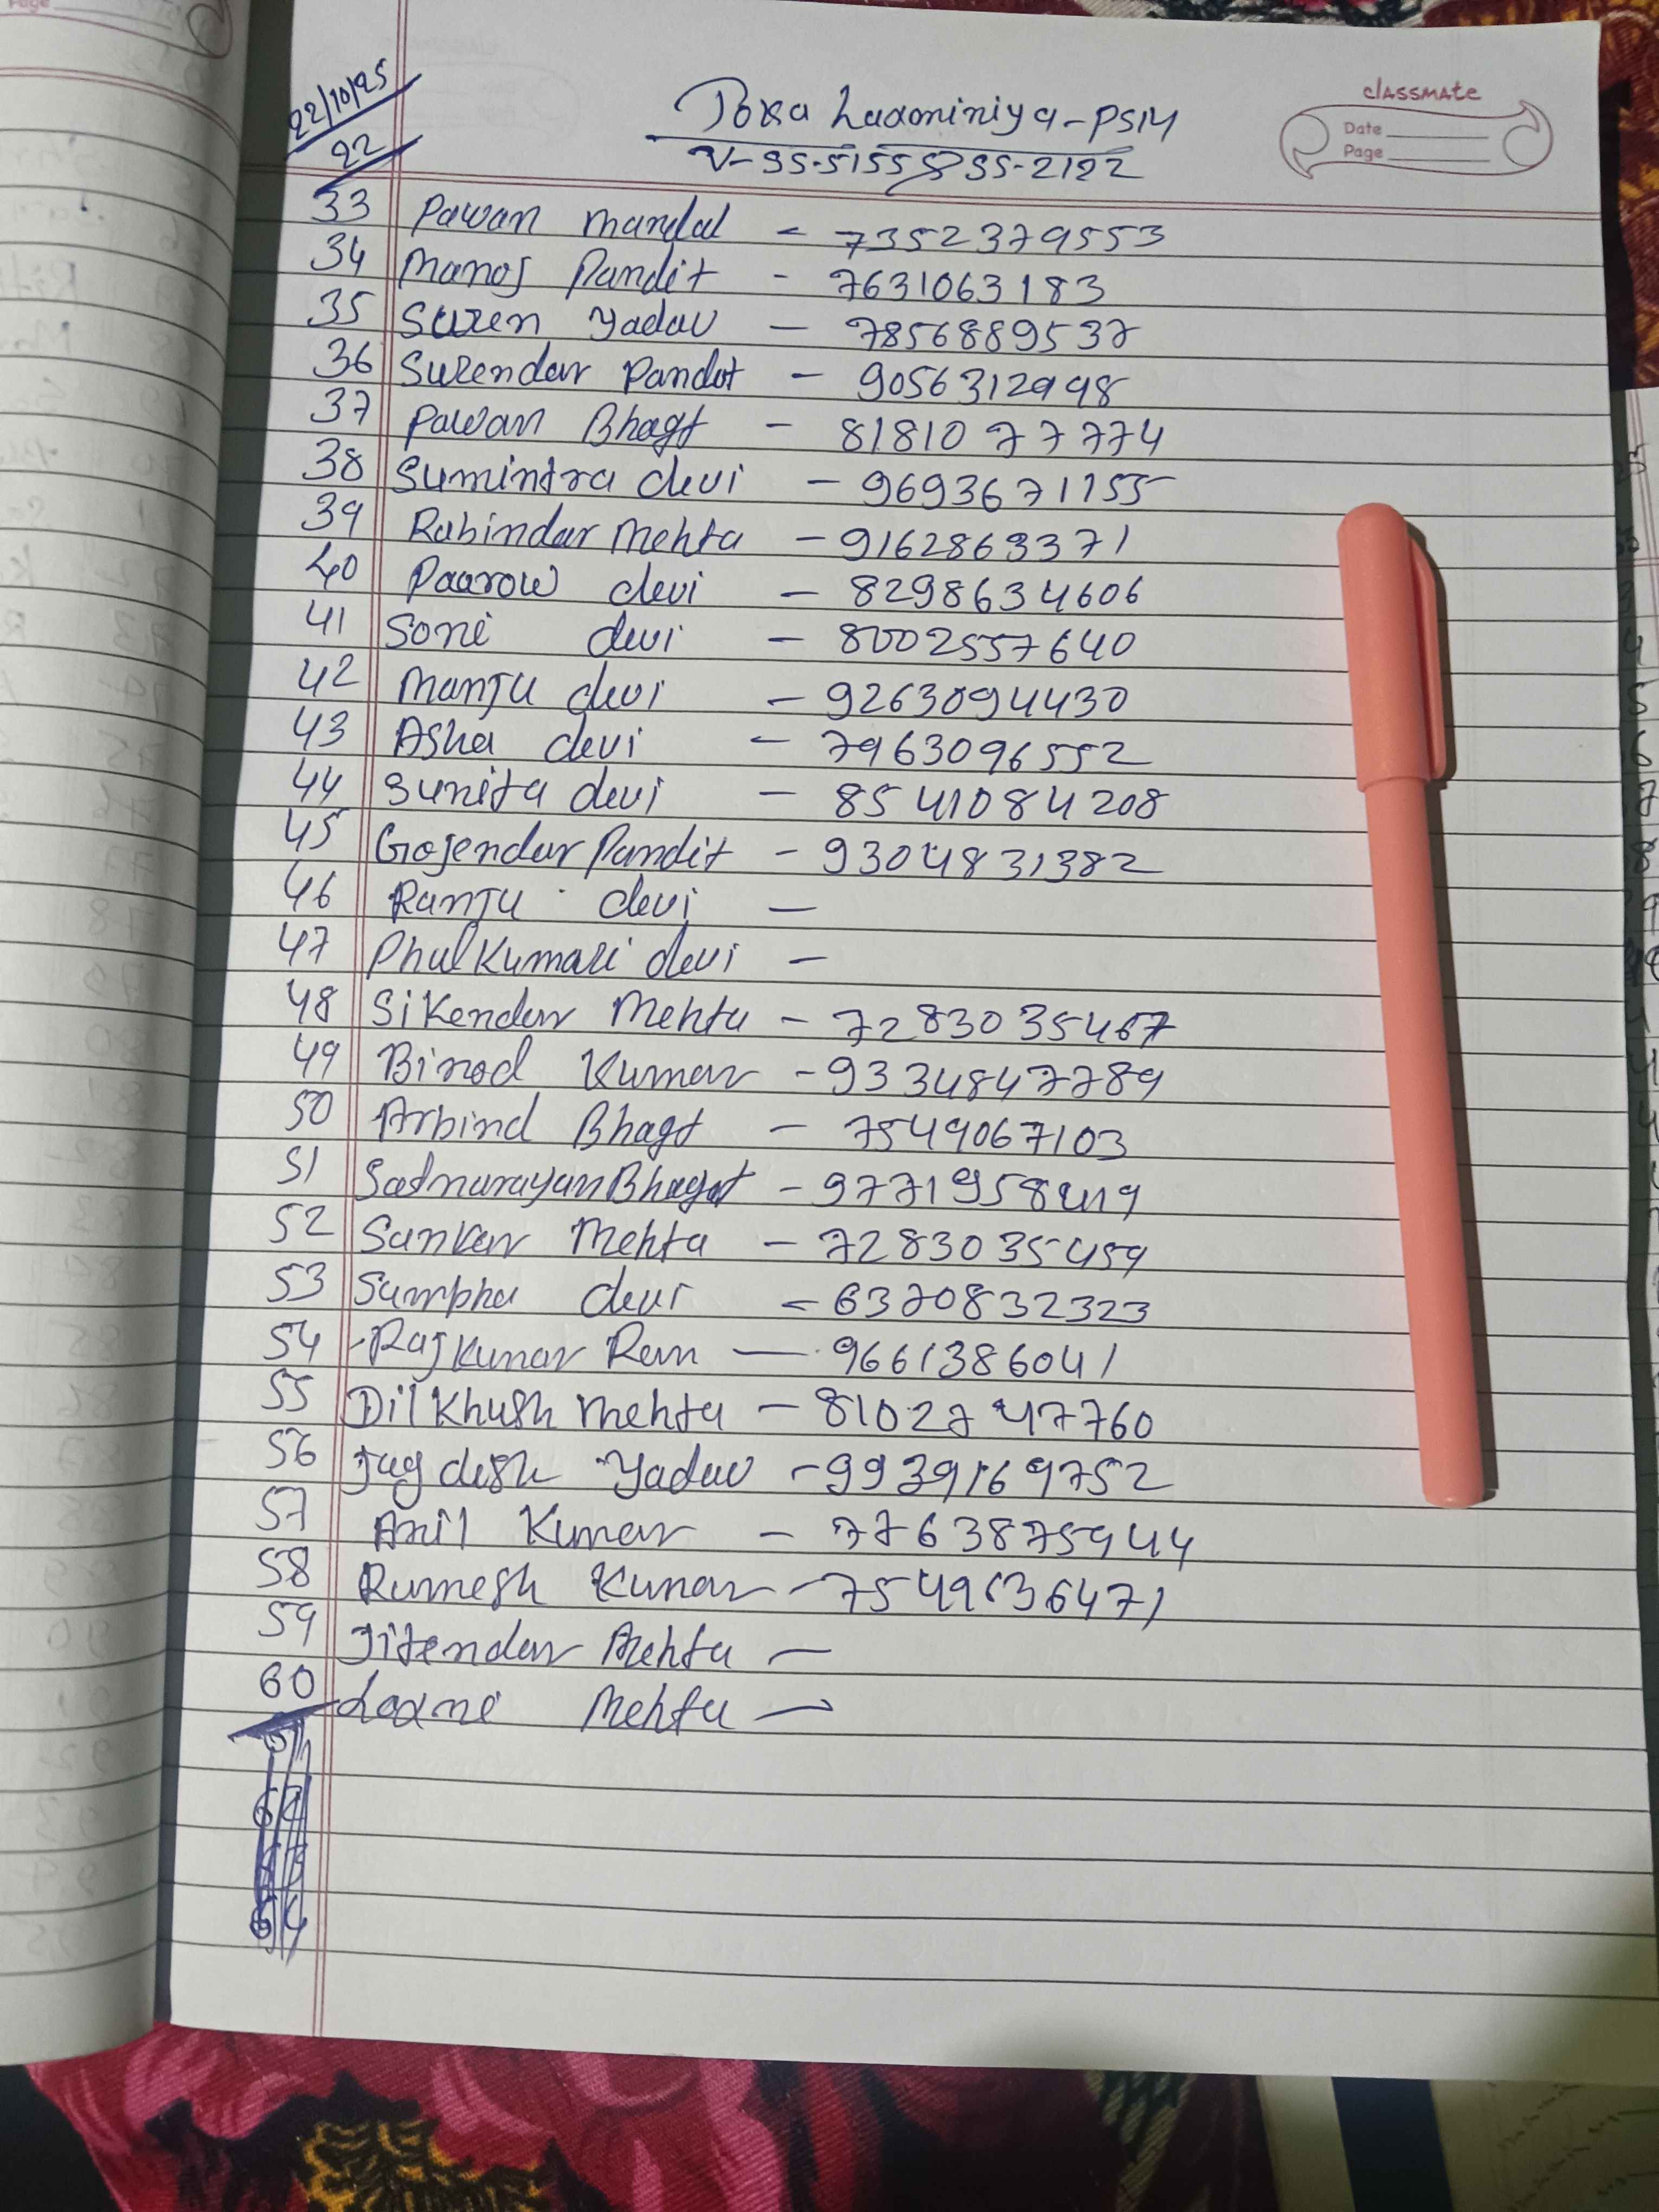 22/10/25
22
Toxa Laxminiya-PSM
V-SS-5155 & SS-2122
classmate
Date
Page
33 Pawan mandal - 7352379553
34 Manoj Pandit - 7631063183
35 Suren Yadav - 7856889537
36 Surendar Pandit - 9056312998
37 Pawan Bhagt - 8181077774
38 Sumintra devi - 9693671155
39 Rabindar Mehta - 9162863371
40 Paarow devi - 8298634606
41 Soni devi - 8002557640
42 Manju devi - 9263094430
43 Asha devi - 7963096552
44 Sunita devi - 8541084208
45 Gojendar Pandit - 9304831382
46 Ranju devi -
47 Phul Kumari devi -
48 Sikendar Mehta - 7283035467
49 Binod Kumar - 9334847789
50 Arbind Bhagt - 7549067103
51 Satnarayan Bhagat - 9771958419
52 Sankar Mehta - 7283035459
53 Sampha devi - 6370832323
54 Raj Kumar Ram - 9661386041
55 Dil Khush Mehta - 8102747760
56 Jagdish Yadav - 9939169752
57 Anil Kumar - 7763875944
58 Ramesh Kumar - 7549636471
59 Jitendar Mehta -
60 Laxmi Mehta -